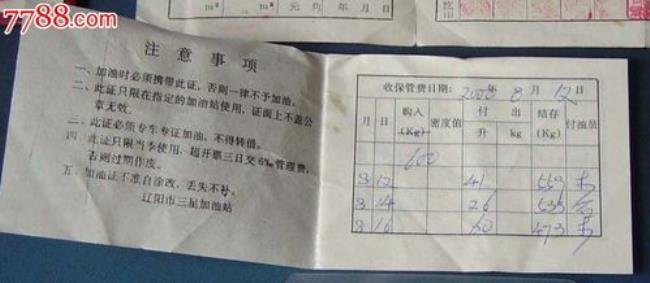 7788.com
m³ m³ 元 角 年 月 日
注意事项
一、加油时必须携带此证，否则一律不予加油。
二、此证只限在指定的加油站使用，证面上不盖公
章无效。
三、此证必须专车专证加油，不得转借。
四、此证只限当季使用，超开票三日交6‰管理费，
否则过期作废。
五、加油证不准自涂改，丢失不补。
辽阳市三星加油站
收保管费日期：2000年 8 月 12 日
月 日 购入(Kg) 密度值 付出 升 kg 结存(Kg) 付油员
600
8 12 41 559
8 14 26 533
8 16 60 473